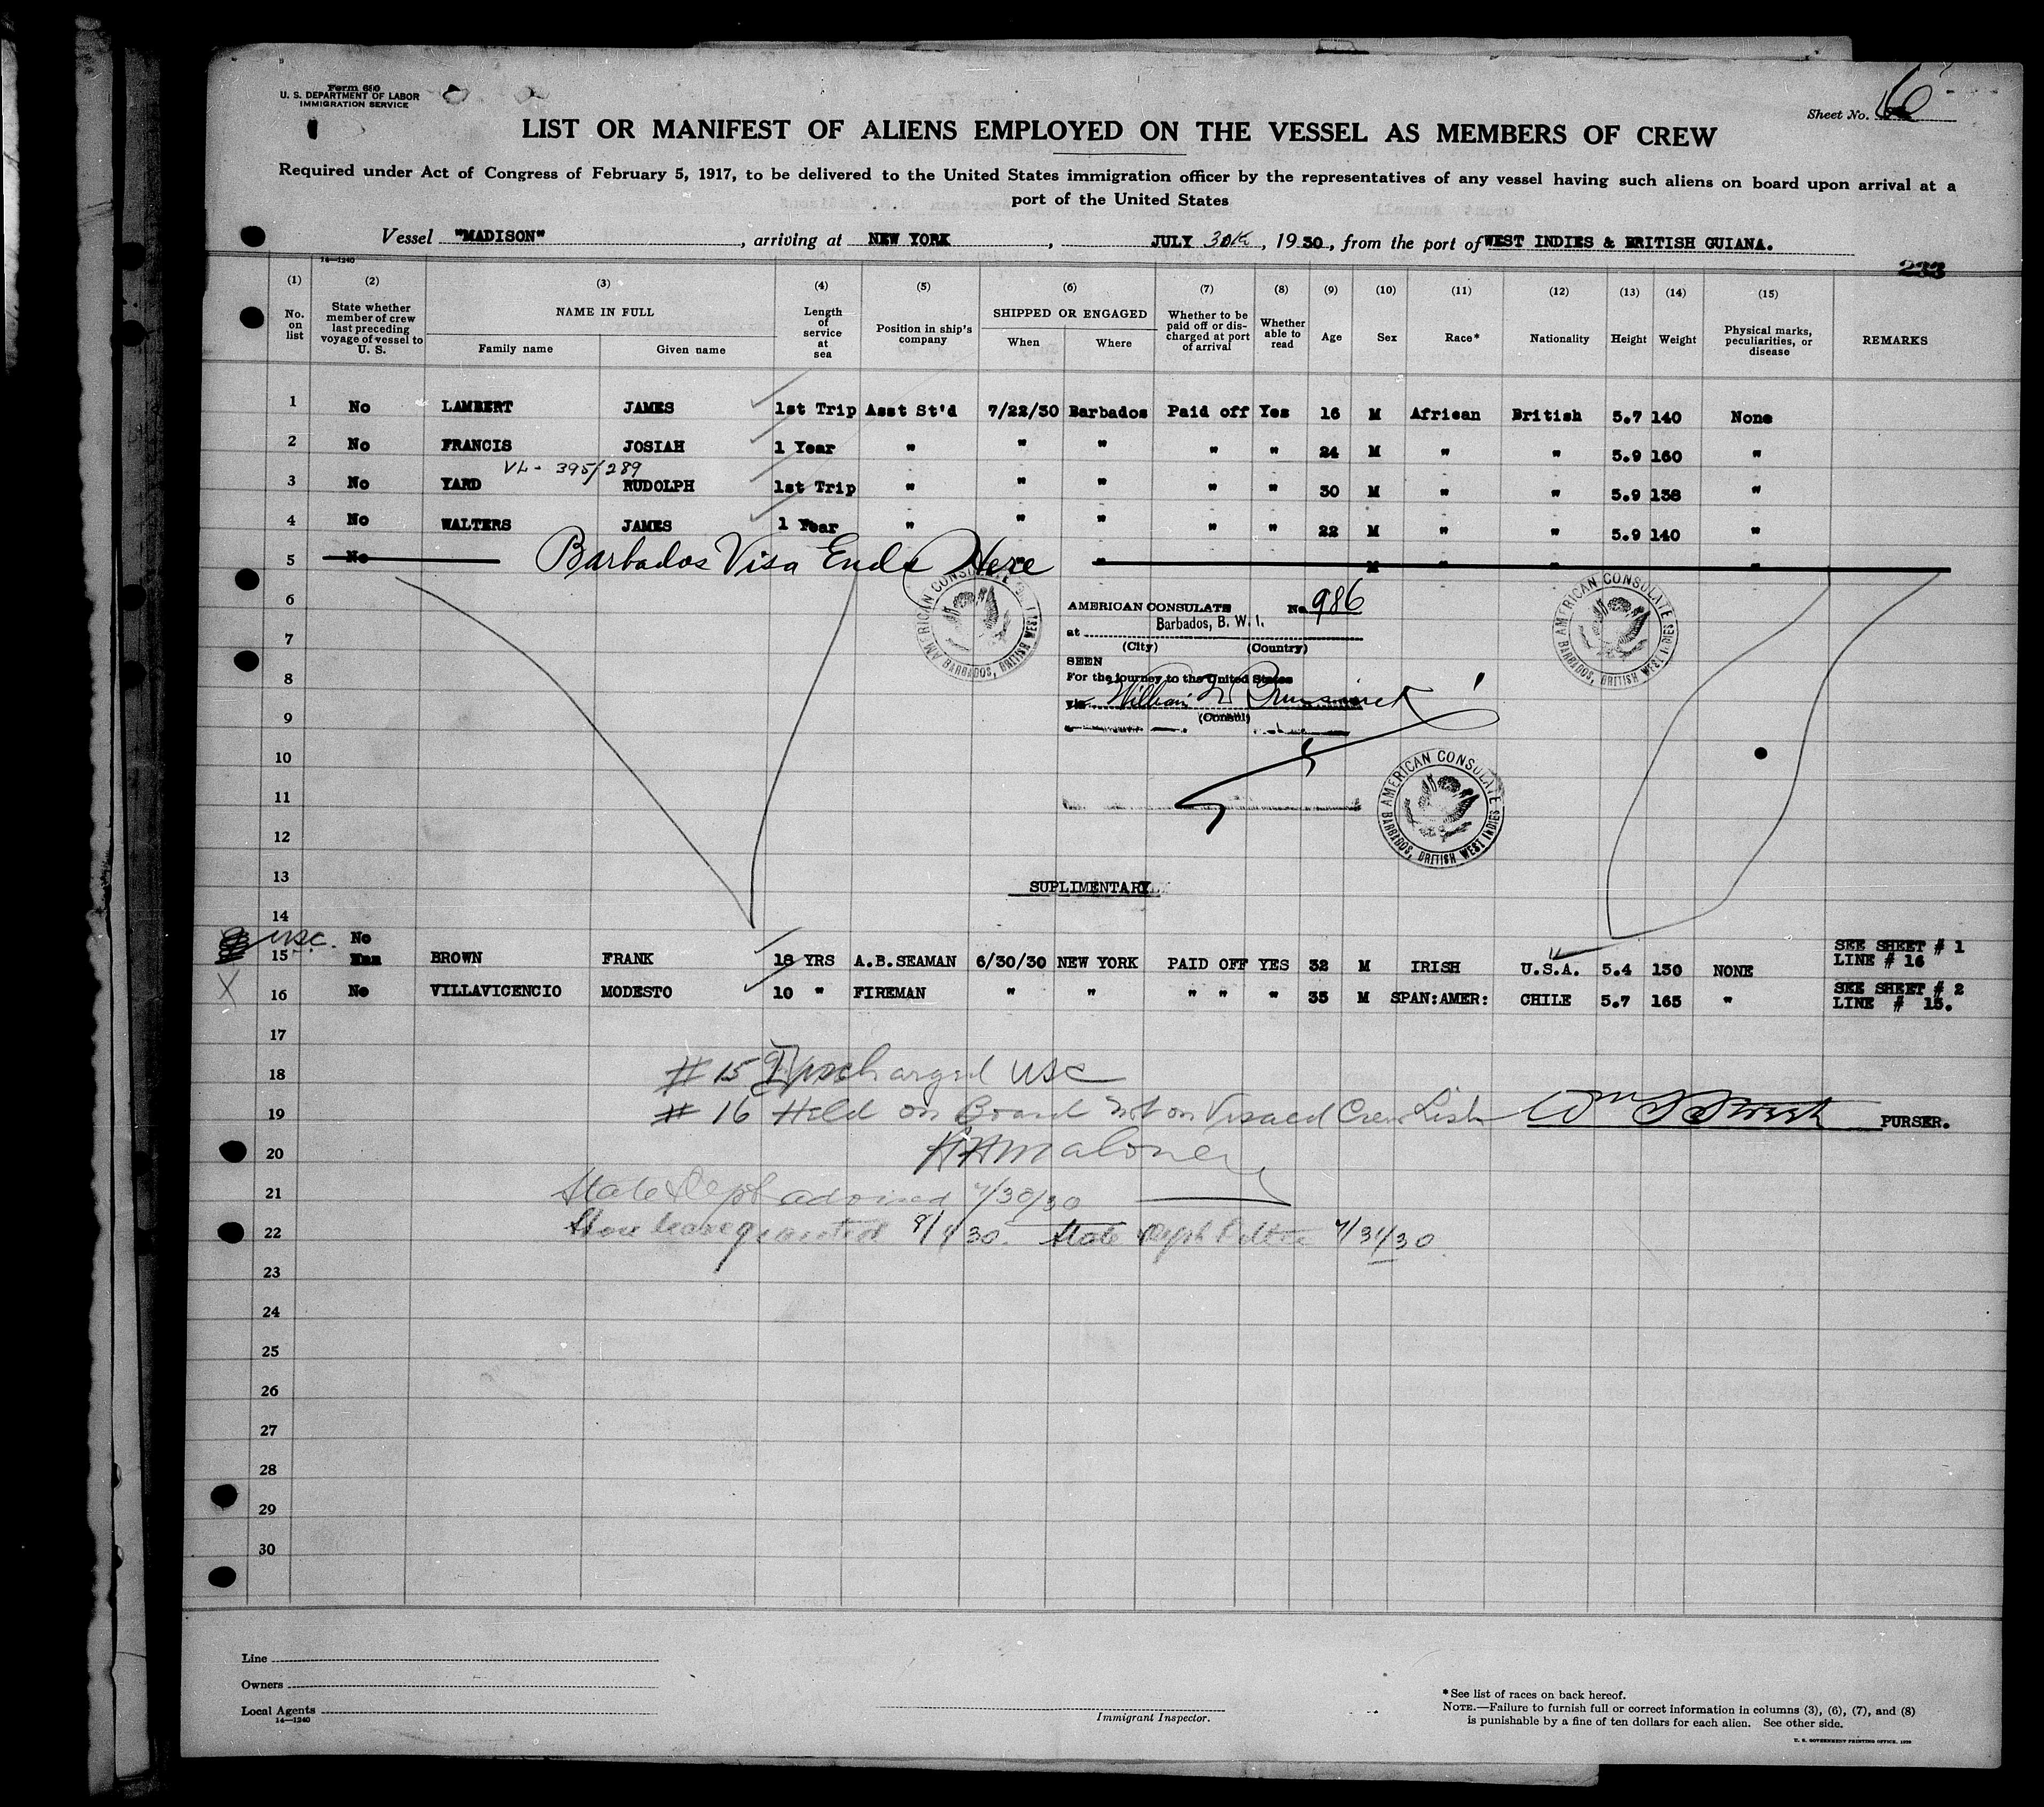 Form 680
U. S. DEPARTMENT OF LABOR
IMMIGRATION SERVICE
Sheet No. 6
LIST OR MANIFEST OF ALIENS EMPLOYED ON THE VESSEL AS MEMBERS OF CREW
Required under Act of Congress of February 5, 1917, to be delivered to the United States immigration officer by the representatives of any vessel having such aliens on board upon arrival at a
port of the United States
Vessel "MADISON", arriving at NEW YORK, JULY 30th, 1930, from the port of WEST INDIES & BRITISH GUIANA.
14—1240
233
(1) (2) (3) (4) (5) (6) (7) (8) (9) (10) (11) (12) (13) (14) (15)
No. on list State whether member of crew last preceding voyage of vessel to U. S. NAME IN FULL Family name Given name Length of service at sea Position in ship's company SHIPPED OR ENGAGED When Where Whether to be paid off or discharged at port of arrival Whether able to read Age Sex Race* Nationality Height Weight Physical marks, peculiarities, or disease REMARKS
1 No LAMBERT JAMES 1st Trip Asst St'd 7/22/30 Barbados Paid off Yes 16 M African British 5.7 140 None
2 No FRANCIS JOSIAH 1 Year " " " " " 24 M " " 5.9 160 "
VL - 395/289
3 No YARD RUDOLPH 1st Trip " " " " " 30 M " " 5.9 138 "
4 No WALTERS JAMES 1 Year " " " " " 22 M " " 5.9 140 "
5 No Barbados Visa Ends Here " M " " "
6
AMERICAN CONSULATE No 986
7 at Barbados, B. W. I.
(City) (Country)
SEEN
8 For the journey to the United States
via William W Brunswick
9 (Consul)
AMERICAN CONSULATE BARBADOS, BRITISH WEST INDIES
AMERICAN CONSULATE BARBADOS, BRITISH WEST INDIES
AMERICAN CONSULATE BARBADOS, BRITISH WEST INDIES
10
11
12
13 SUPLIMENTARY
14
USC. No
15 BROWN FRANK 18 YRS A.B.SEAMAN 6/30/30 NEW YORK PAID OFF YES 32 M IRISH U.S.A. 5.4 150 NONE SEE SHEET # 1 LINE # 16
X 16 No VILLAVICENCIO MODESTO 10 " FIREMAN " " " " " 35 M SPAN:AMER: CHILE 5.7 165 " SEE SHEET # 2 LINE # 15.
17
18 # 15 Discharged USC
19 # 16 Held on Board not on Visaed Crew List Wm S PURSER.
20 Maloney
21 State Dept advised 7/30/30
22 Shore leave granted 8/1/30. State Dept 7/31/30
23
24
25
26
27
28
29
30
Line
Owners
Local Agents
14—1240
Immigrant Inspector.
*See list of races on back hereof.
NOTE.—Failure to furnish full or correct information in columns (3), (6), (7), and (8)
is punishable by a fine of ten dollars for each alien. See other side.
U. S. GOVERNMENT PRINTING OFFICE, 1929